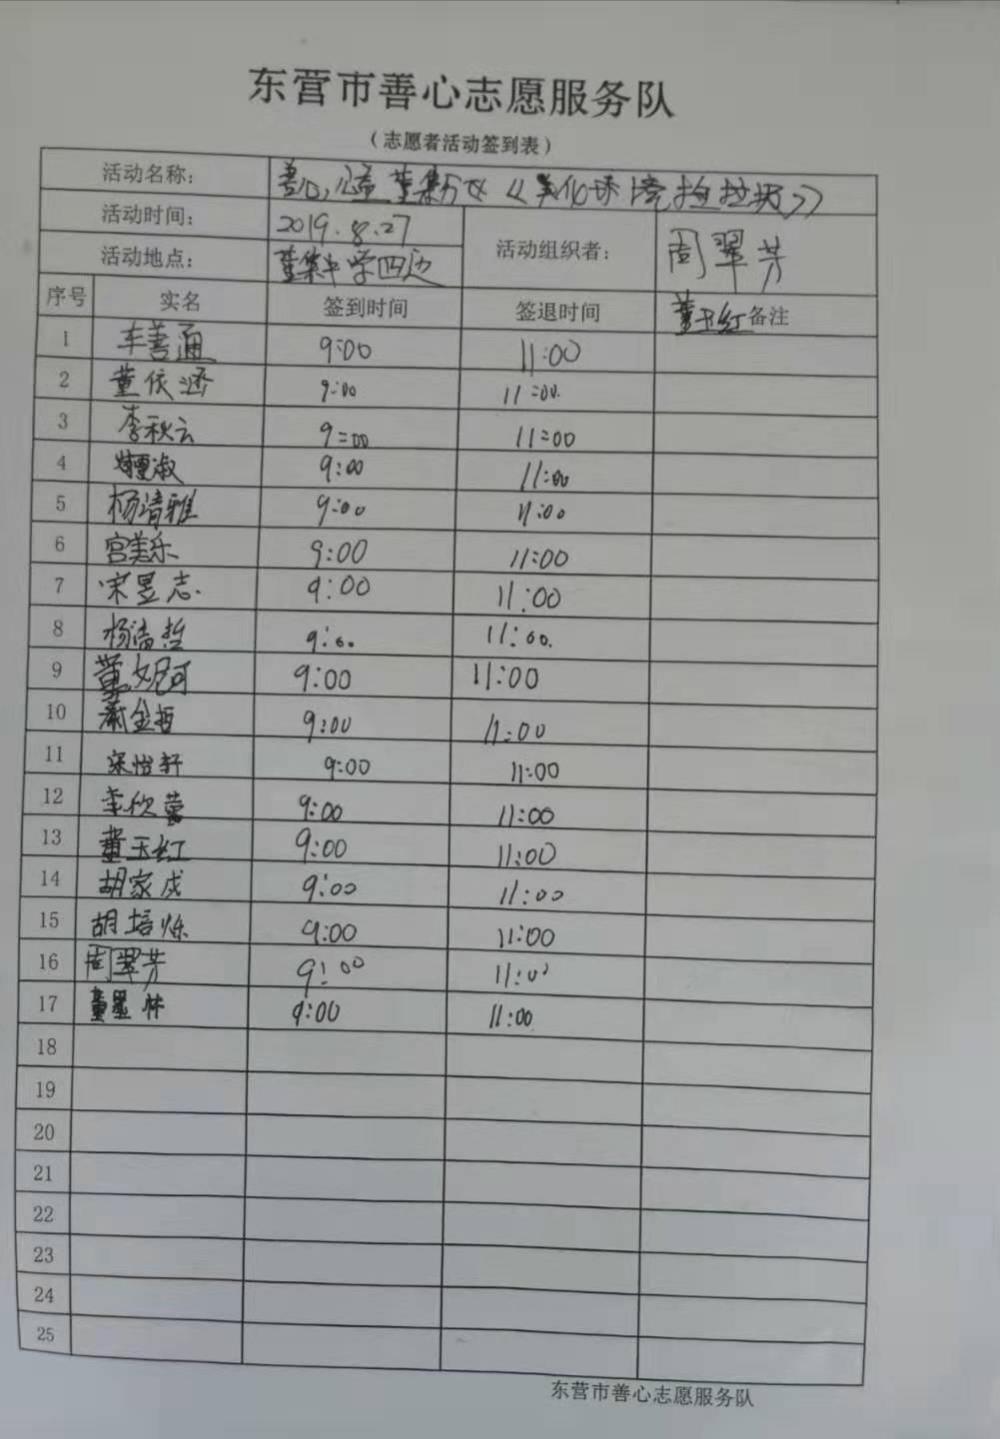 东营市善心志愿服务队
(志愿者活动签到表)
活动名称： 善心 董集 《美化环境捡垃圾》
活动时间： 2019.8.27
活动组织者： 周翠芳
活动地点： 董集中学四边
序号 实名 签到时间 签退时间 董玉红 备注
1 车善通 9:00 11:00
2 董依涵 9:00 11:00.
3 李秋云 9:00 11:00
4 9:00 11:00
5 杨清雅 9:00 11:00
6 宫美乐 9:00 11:00
7 宋昱志. 9:00 11:00
8 杨清哲 9:00. 11:00.
9 董妮可 9:00 11:00
10 金哲 9:00 11:00
11 宋怡轩 9:00 11:00
12 李欣蕾 9:00 11:00
13 董玉红 9:00 11:00
14 胡家成 9:00 11:00
15 胡培烁 9:00 11:00
16 周翠芳 9:00 11:00
17 董星 9:00 11:00
18
19
20
21
22
23
24
25
东营市善心志愿服务队